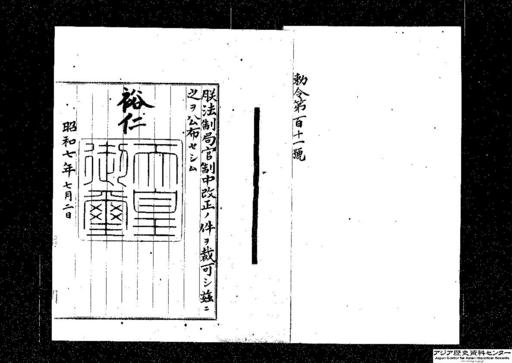 勅令第百十一號
朕法制局官制中改正ノ件ヲ裁可シ茲ニ
之ヲ公布セシム
裕仁
天皇御璽
昭和七年七月二日
アジア歴史資料センター
Japan Center for Asian Historical Records